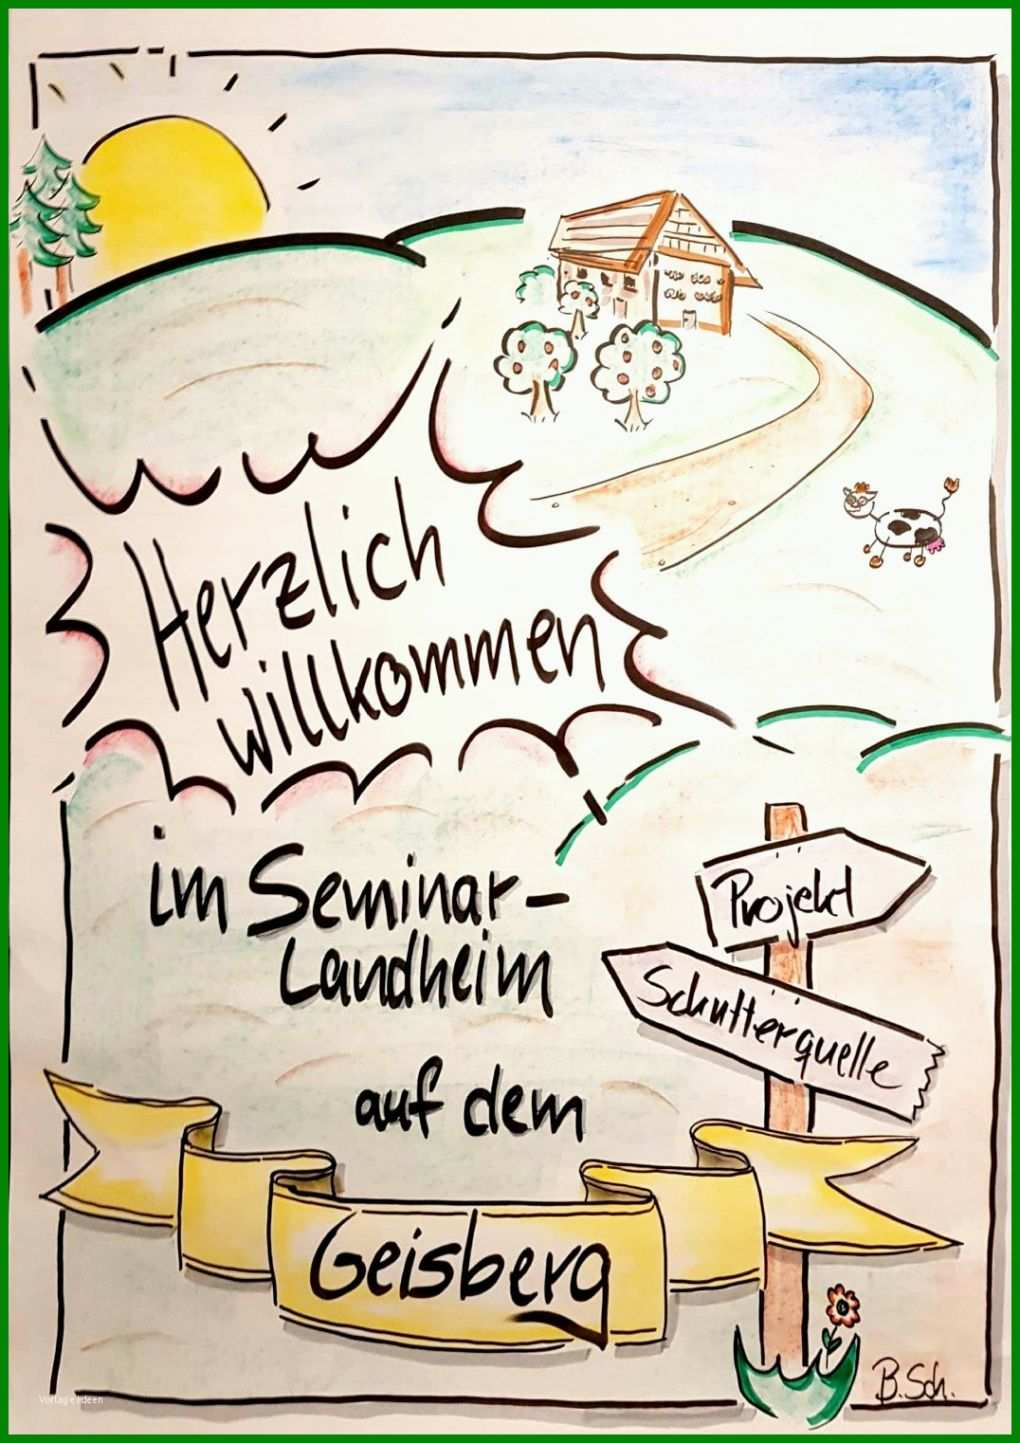 Herzlich
willkommen
im Seminar-
Landheim
auf dem
Geisberg
Projekt
Schutterquelle
B.Sch.
Vorlage Ideen